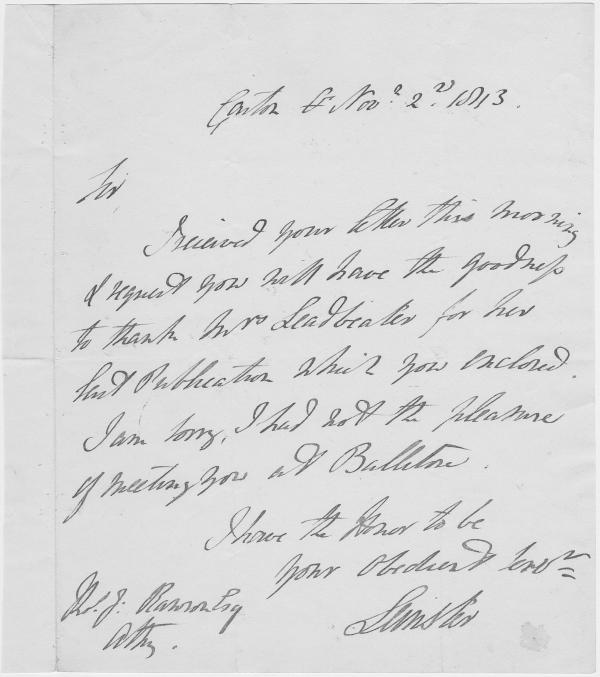 Carton Nov.r 2.nd 1813.
Sir
I received your letter this morning
& request you will have the goodness
to thank Mrs Leadbeater for her
last Publication which you enclosed.
I am sorry, I had not the pleasure
of meeting you at Ballitore.
I have the Honor to be
your Obedient Serv.t
Leinster
Tho.s J: Rawson Esq
Athy.